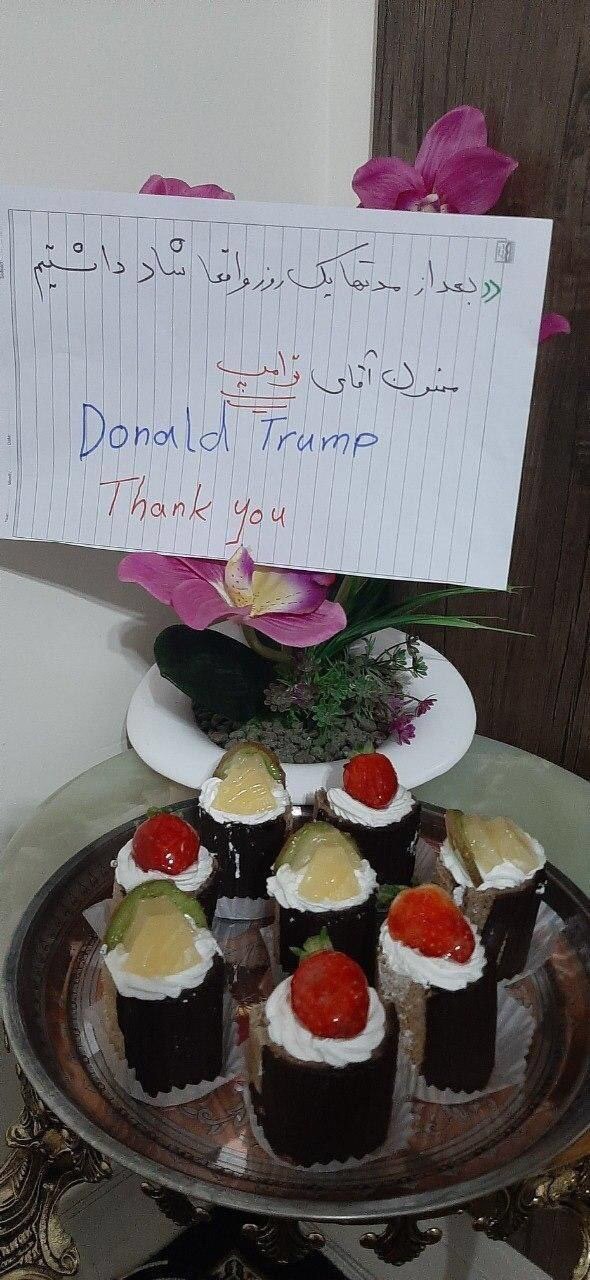 «بعد از مدتها یک روز واقعا شاد داشتیم
ممنون آقای ترامپ
Donald Trump
Thank you